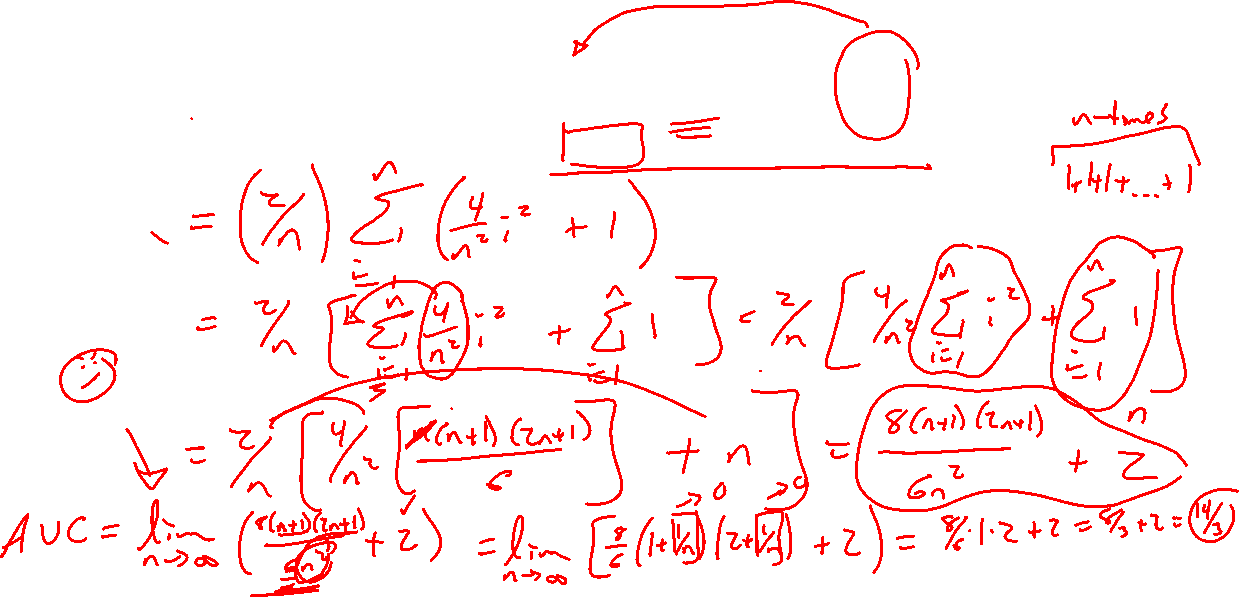 n-times
1+1+1+...+1
= (2/n) Σ_{i=1}^{n} (4/n² i² + 1)
= 2/n [Σ_{i=1}^{n} 4/n² i² + Σ_{i=1}^{n} 1] = 2/n [4/n² Σ_{i=1}^{n} i² + Σ_{i=1}^{n} 1]
n
= 2/n [4/n² [n(n+1)(2n+1)/6] + n] = 8(n+1)(2n+1)/6n² + 2
→0 →0
AUC = lim_{n→∞} (8(n+1)(2n+1)/6n² + 2) = lim_{n→∞} [8/6 (1+1/n)(2+1/n) + 2) = 8/6·1·2+2 = 8/3+2 = 14/3